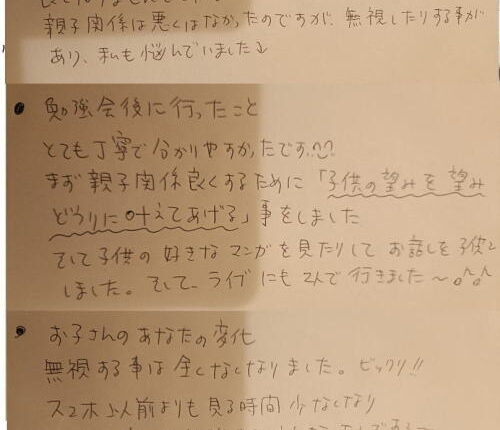 親子関係は悪くはなかったのですが、無視したりする事が
あり、私も悩んでいました↓
● 勉強会後に行ったこと
とても丁寧で分かりやすかったです
まず親子関係良くするために「子供の望みを望み
どうりに叶えてあげる」事をしました
そして子供の好きなマンガを見たりしてお話しを子供と
しました。そして、ライブにも2人で行きました〜
● お子さんのあなたの変化
無視する事は全くなくなりました。ビックリ!!
スマホも以前よりも見る時間少なくなり